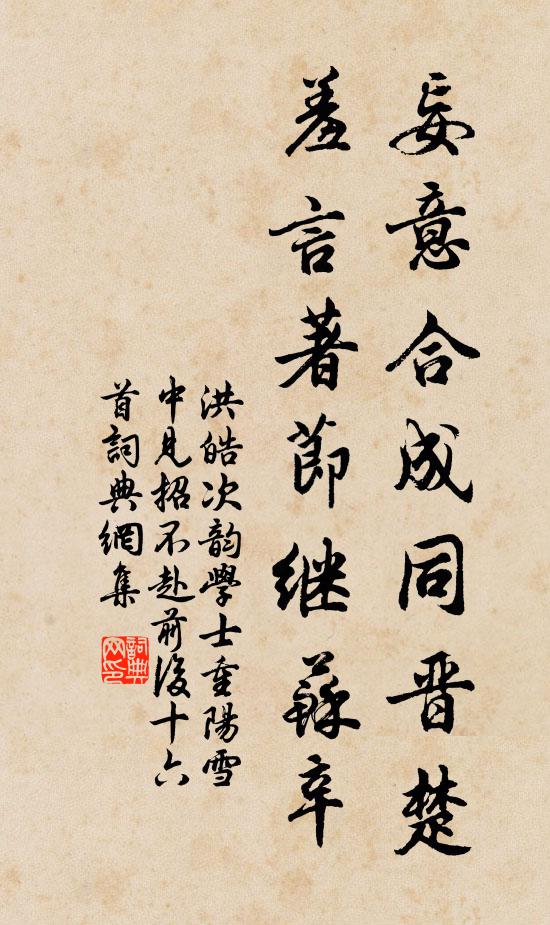 妄意合成同晋楚
羞言著節継蘇辛
洪皓次韵學士重陽雪
中見招不赴前後十六
首詞典網集
詞典网印